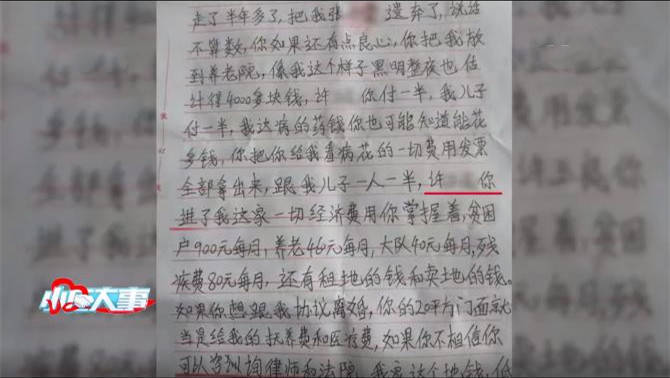 走了半年多了,把我张 遗弃了,说话
不算数,你如果还有点良心,你把我放
到养老院,像我这个样子黑明整夜也估
计得4000多块钱,许 你付一半,我儿子
付一半,我这病的药钱你也可能知道能花
多钱,你把你给我看病花的一切费用发票
全部拿出来,跟我儿子一人一半,许 你
进了我这家一切经济费用你掌握着,贫困
户900元每月,养老46元每月,大队40元每月,残
疾费80元每月,还有租地的钱和卖地的钱。
如果你想跟我协议离婚,你的20平方门面就
当是给我的抚养费和医疗费,如果你不相信你
可以咨询律师和法院,我要这个地钱,低
小心大事